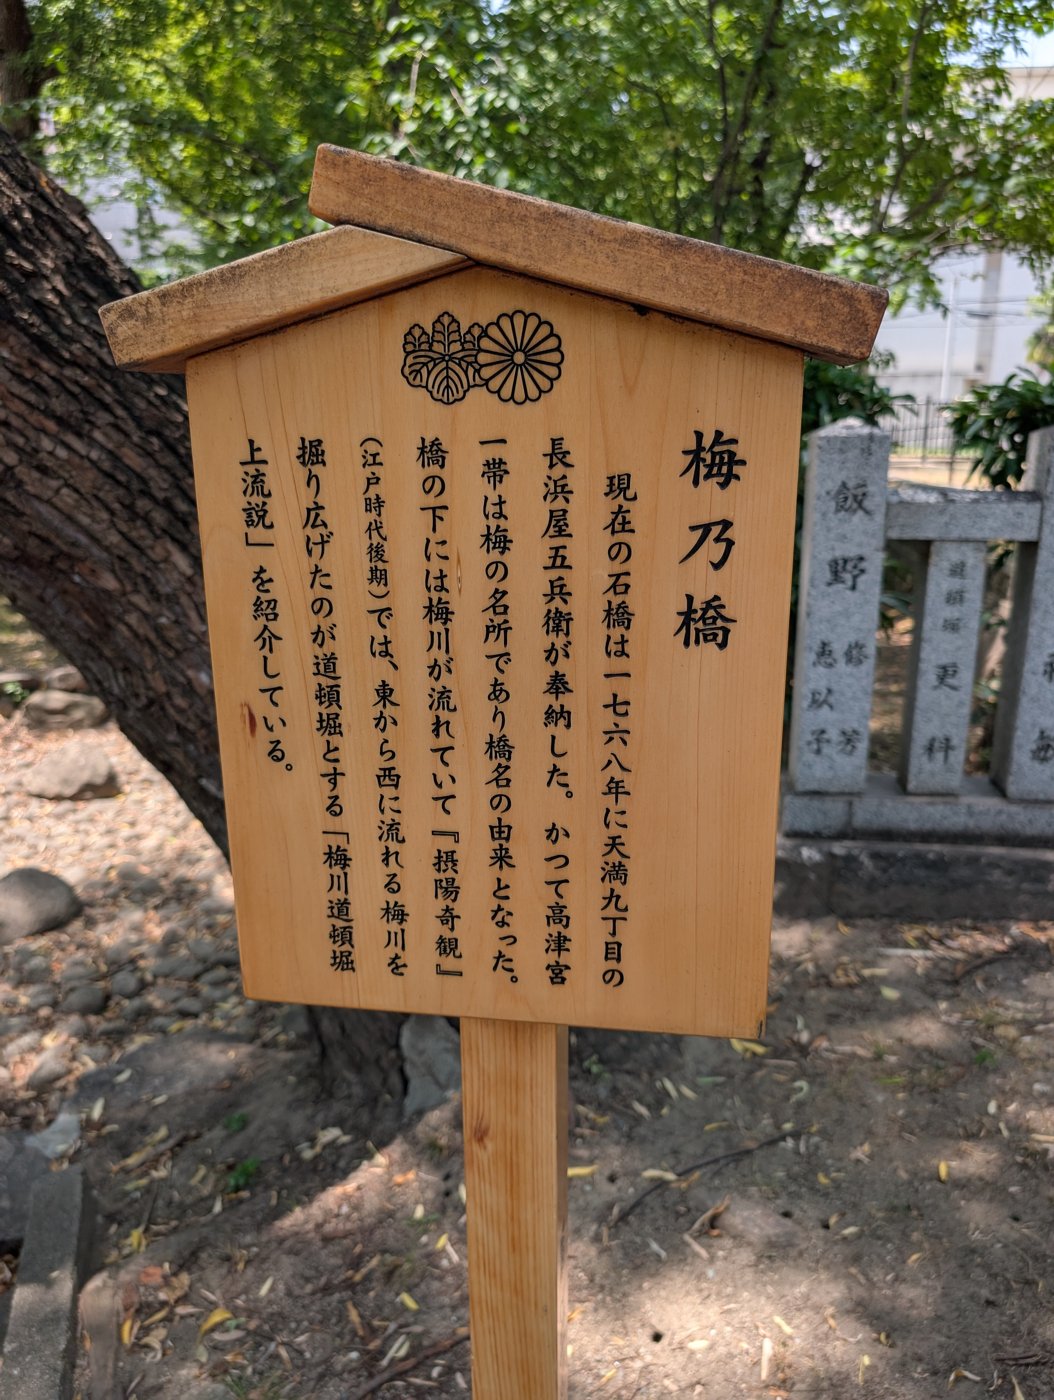 梅乃橋
現在の石橋は一七六八年に天満九丁目の
長浜屋五兵衛が奉納した。かつて高津宮
一帯は梅の名所であり橋名の由来となった。
橋の下には梅川が流れていて『摂陽奇観』
（江戸時代後期）では、東から西に流れる梅川を
掘り広げたのが道頓堀とする「梅川道頓堀
上流説」を紹介している。
飯野
修芳
恵以子
更科